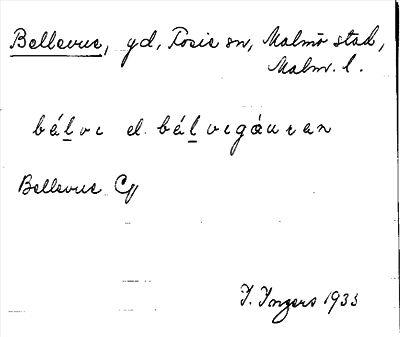 Bellevue, gd, Fosie sn, Malmö stad,
Malm. l.
bélve el. bélvegåuran
Bellevue Cg
I. Ingers 1933